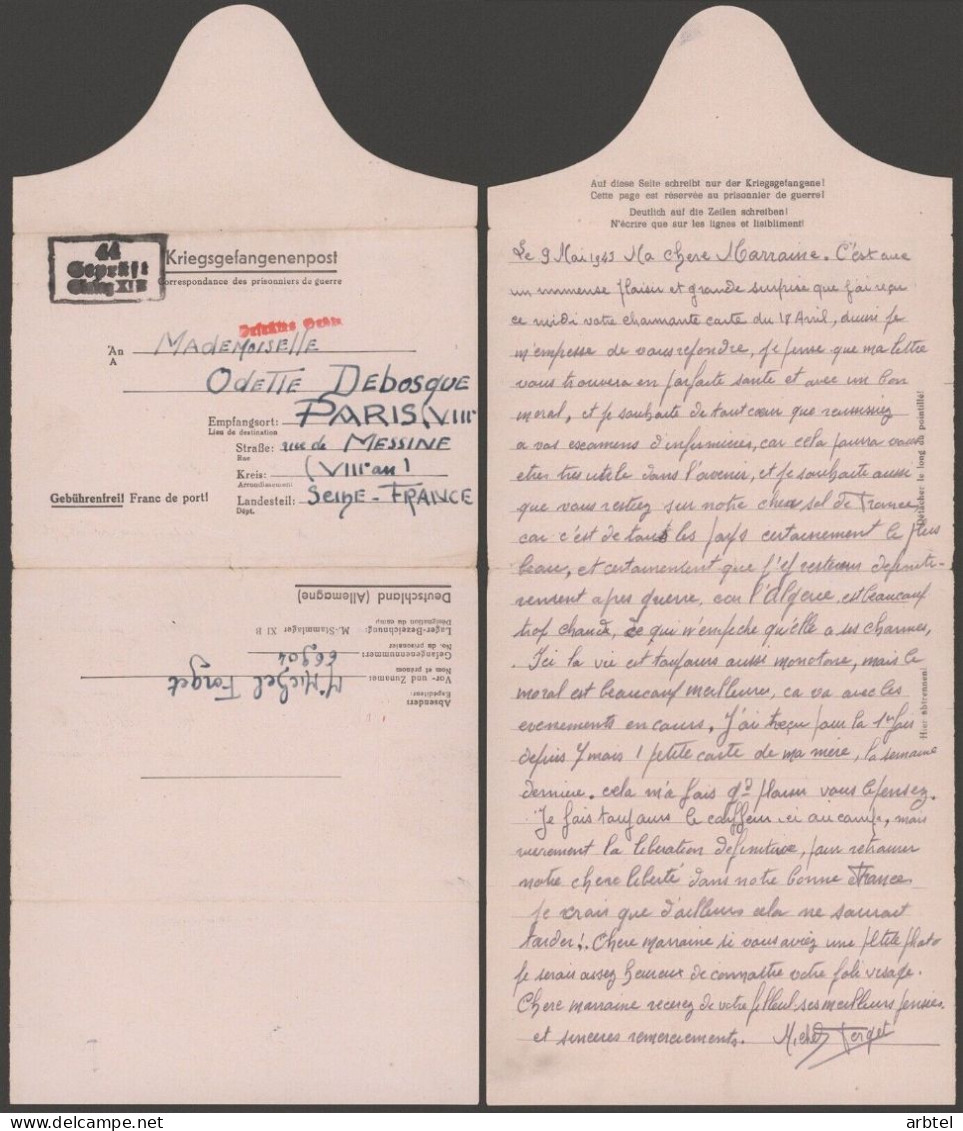 44
Geprüft
Stalag XI B
Kriegsgefangenenpost
Correspondance des prisonniers de guerre
An MADEMOISELLE
A
ODETTE DEBOSQUE
Empfangsort: PARIS VIIIe
Lieu de destination
Straße: rue de MESSINE
Rue
Kreis: (VIIIe arr)
Arrondissement
Gebührenfrei! Franc de port! Landesteil: SEINE-FRANCE
Dépt.
Deutschland (Allemagne)
Lager-Bezeichnung: M.-Stammlager XI B
Désignation du camp
Gefangenennummer: 66904
No. du prisonnier
Vor- und Zuname: Mr Michel Forget
Nom et prénom
Absender:
Expéditeur:
Auf diese Seite schreibt nur der Kriegsgefangene!
Cette page est réservée au prisonnier de guerre!
Deutlich auf die Zeilen schreiben!
N'écrire que sur les lignes et lisiblement!
Le 9 Mai 1943 Ma chere Marraine. C'est avec
un immense plaisir et grande surprise que j'ai reçu
ce midi votre charmante carte du 18 Avril, aussi je
m'empresse de vous repondre, je pense que ma lettre
vous trouvera en parfaite santé et avec un bon
moral, et je souhaite de tout cœur que reussissiez
a vos examens d'infirmieres, car cela pourra vous
etre tres utile dans l'avenir, et je souhaite aussi
que vous restiez sur notre cher sol de France
car c'est de tous les pays certainement le plus
beau, et certainement que j'y resterais definiti-
vement apres guerre, car l'Algerie est beaucoup
trop chaud, ce qui n'empeche qu'elle a ses charmes,
Ici la vie est toujours aussi monotone, mais le
moral est beaucoup meilleure, ca va avec les
evenements en cours. J'ai reçu pour la 1ere fois
depuis 7 mois 1 petite carte de ma mère, la semaine
derniere. cela m'a fais gd plaisir vous le pensez.
Je fais toujours le coiffeur ici au camp, mais
vivement la liberation definitive, pour retrouver
notre chere liberté dans notre bonne France
je crois que d'ailleurs cela ne saurait
tarder!. Chere marraine si vous aviez une petite photo
je serais assez heureux de connaitre votre joli visage.
Chere marraine recevez de votre filleul ses meilleurs pensées
et sinceres remerciements. Michel Forget
Détacher le long du pointillé!
Hier abtrennen!
arbtel